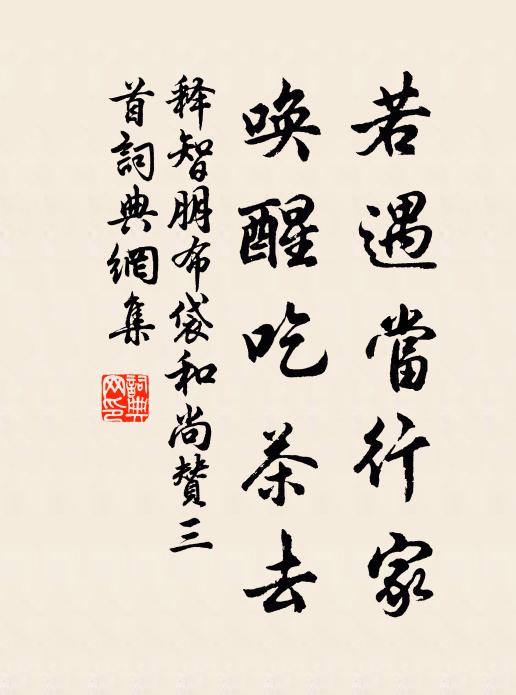 若遇當行家
喚醒吃茶去
释智朋布袋和尚贊三
首詞典網集
詞典
网印